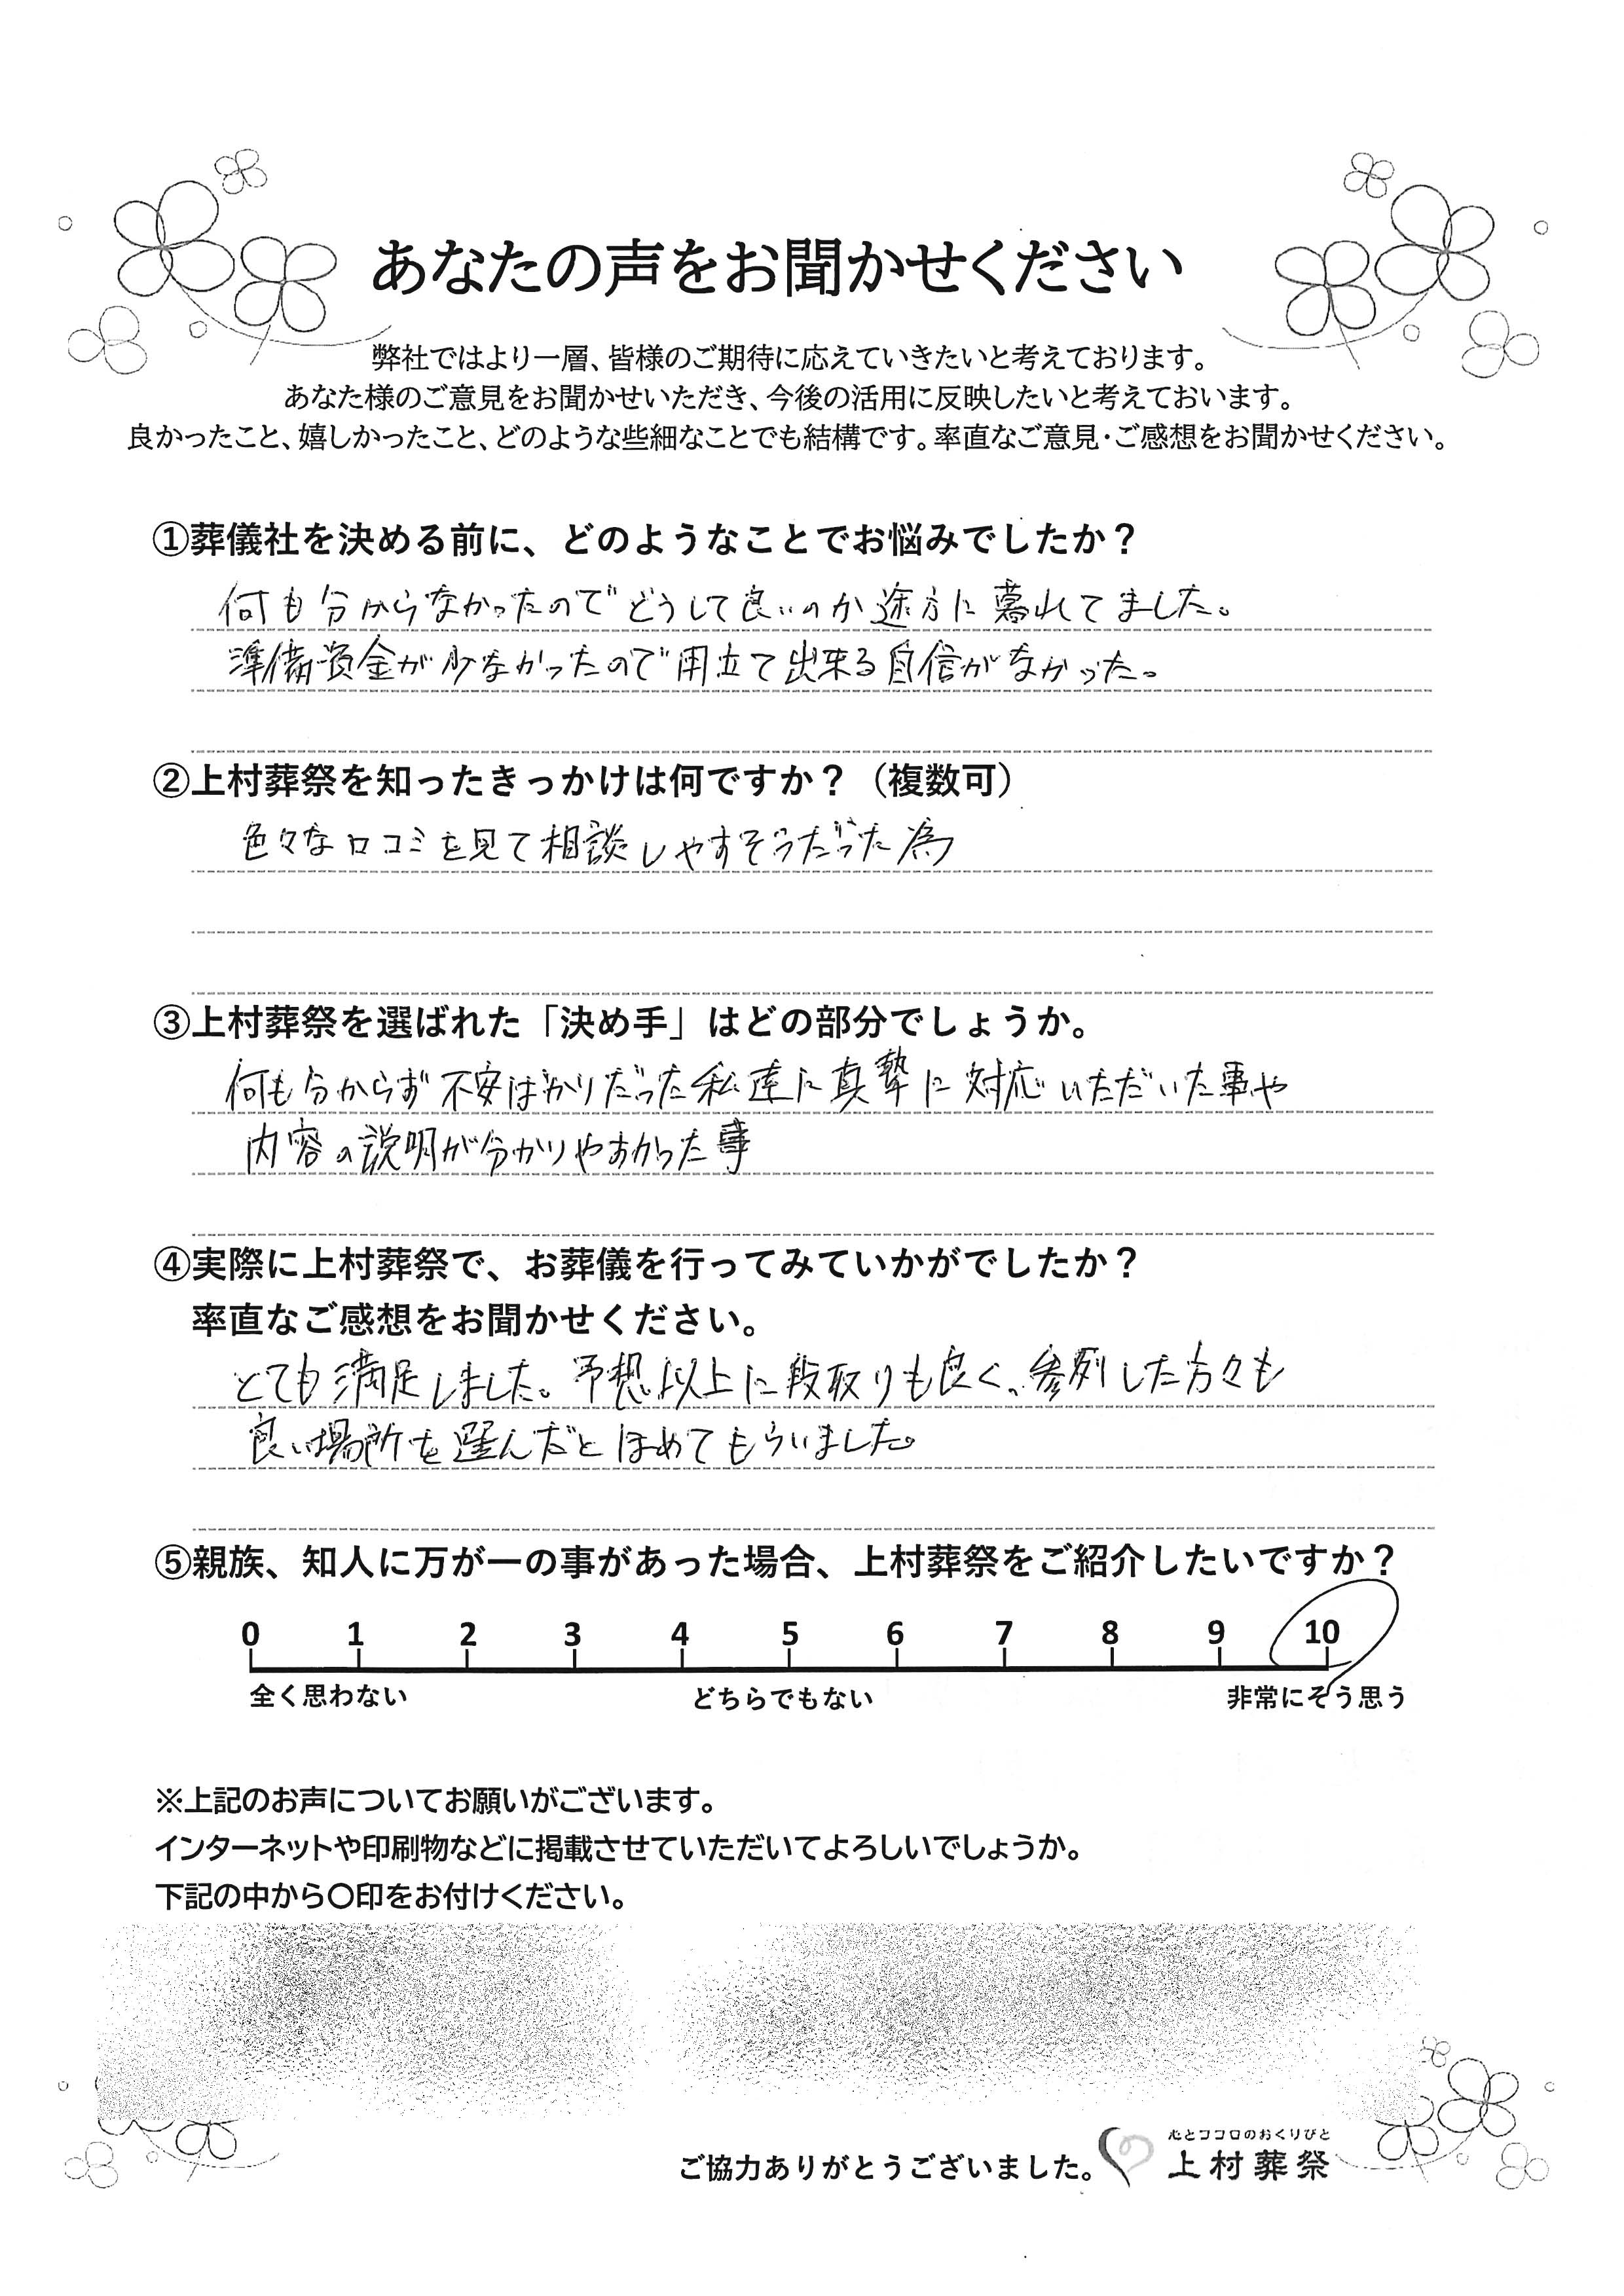 あなたの声をお聞かせください
弊社ではより一層、皆様のご期待に応えていきたいと考えております。
あなた様のご意見をお聞かせいただき、今後の活用に反映したいと考えておいます。
良かったこと、嬉しかったこと、どのような些細なことでも結構です。率直なご意見・ご感想をお聞かせください。
①葬儀社を決める前に、どのようなことでお悩みでしたか？
何も分からなかったのでどうして良いのか途方に暮れてました。
準備資金が少なかったので用立て出来る自信がなかった。
②上村葬祭を知ったきっかけは何ですか？（複数可）
色々な口コミを見て相談しやすそうだった為
③上村葬祭を選ばれた「決め手」はどの部分でしょうか。
何も分からず不安ばかりだった私達に真摯に対応いただいた事や
内容の説明が分かりやすかった事
④実際に上村葬祭で、お葬儀を行ってみていかがでしたか？
率直なご感想をお聞かせください。
とても満足しました。予想以上に段取りも良く、参列した方々も
良い場所を選んだとほめてもらいました。
⑤親族、知人に万が一の事があった場合、上村葬祭をご紹介したいですか？
0 1 2 3 4 5 6 7 8 9 10
全く思わない どちらでもない 非常にそう思う
※上記のお声についてお願いがございます。
インターネットや印刷物などに掲載させていただいてよろしいでしょうか。
下記の中から〇印をお付けください。
心とココロのおくりびと
ご協力ありがとうございました。 上村葬祭